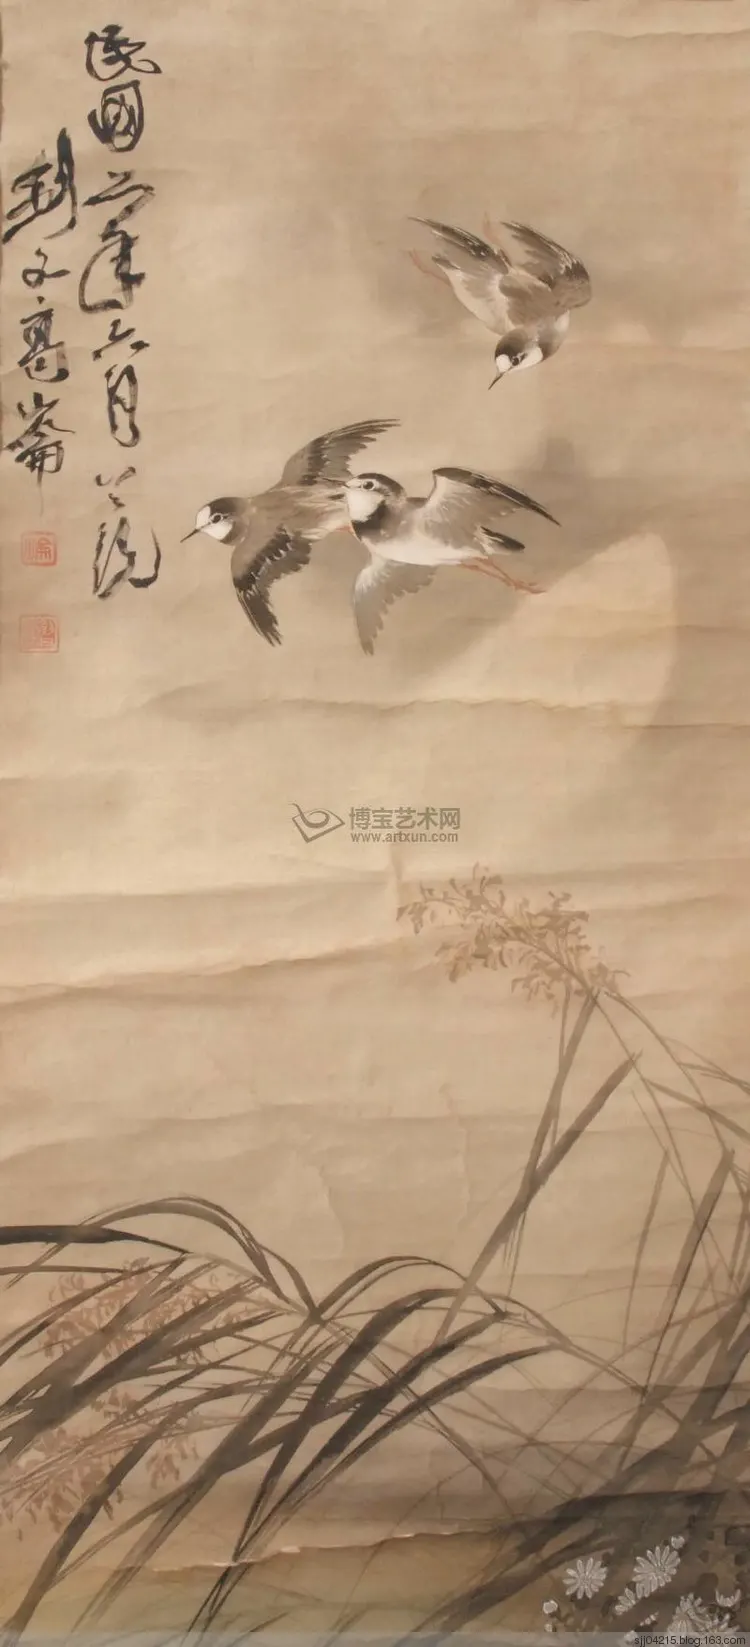 民國二年六月
劍父高崙
博宝艺术网
www.artxun.com
sjj04215.blog.163.com